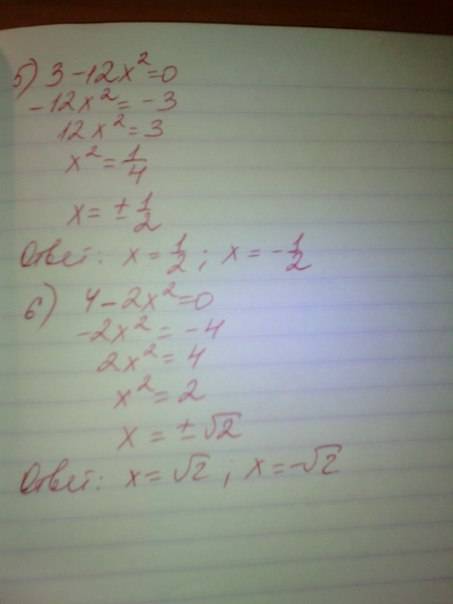 5) 3 - 12x² = 0
-12x² = -3
12x² = 3
x² = 1/4
x = ± 1/2
Ответ: x = 1/2 ; x = - 1/2
6) 4 - 2x² = 0
-2x² = -4
2x² = 4
x² = 2
x = ±√2
Ответ: x = √2 ; x = -√2